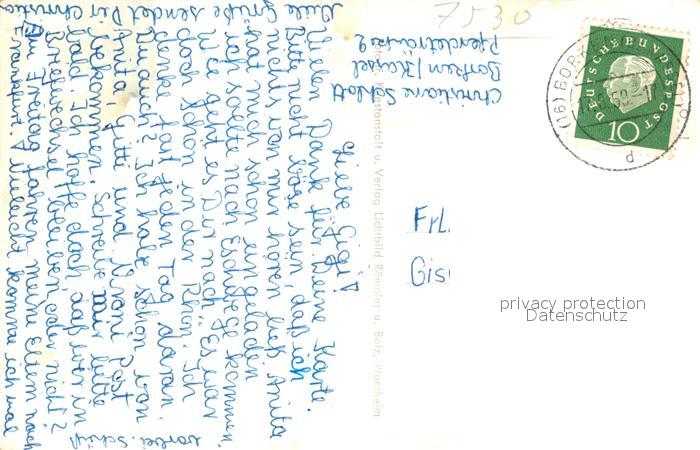 7530
DEUTSCHE BUNDESPOST
10
(16) BORKEN
Christiane Schlott
Borken/Kassel
Pferdetränke 2
Liebe Gigi!
Vielen Dank für Deine Karte.
Bitte nicht böse sein, daß ich
nichts von mir hören ließ. Anita
hat mich schon eingeladen
ich sollte nach Eschwege kommen.
Wie geht es Dir nach? Es war
doch schön in der Rhön. Ich
denke fast jeden Tag daran.
Du auch? Ich habe schon von
Anita, Gitti und Vroni Post
bekommen. Schreibe mir bitte
bald. Ich hoffe doch daß wir in
Briefwechsel bleiben, oder nicht?
Am Freitag fahren meine Eltern nach
Frankfurt. Vielleicht komme ich mal
vorbei. Schluß
Viele Grüße sendet Dir Christa
Kunstanstalt u. Verlag Lichtbild Römpler u. Bolz, Pforzheim
Frl.
Gis
privacy protection
Datenschutz